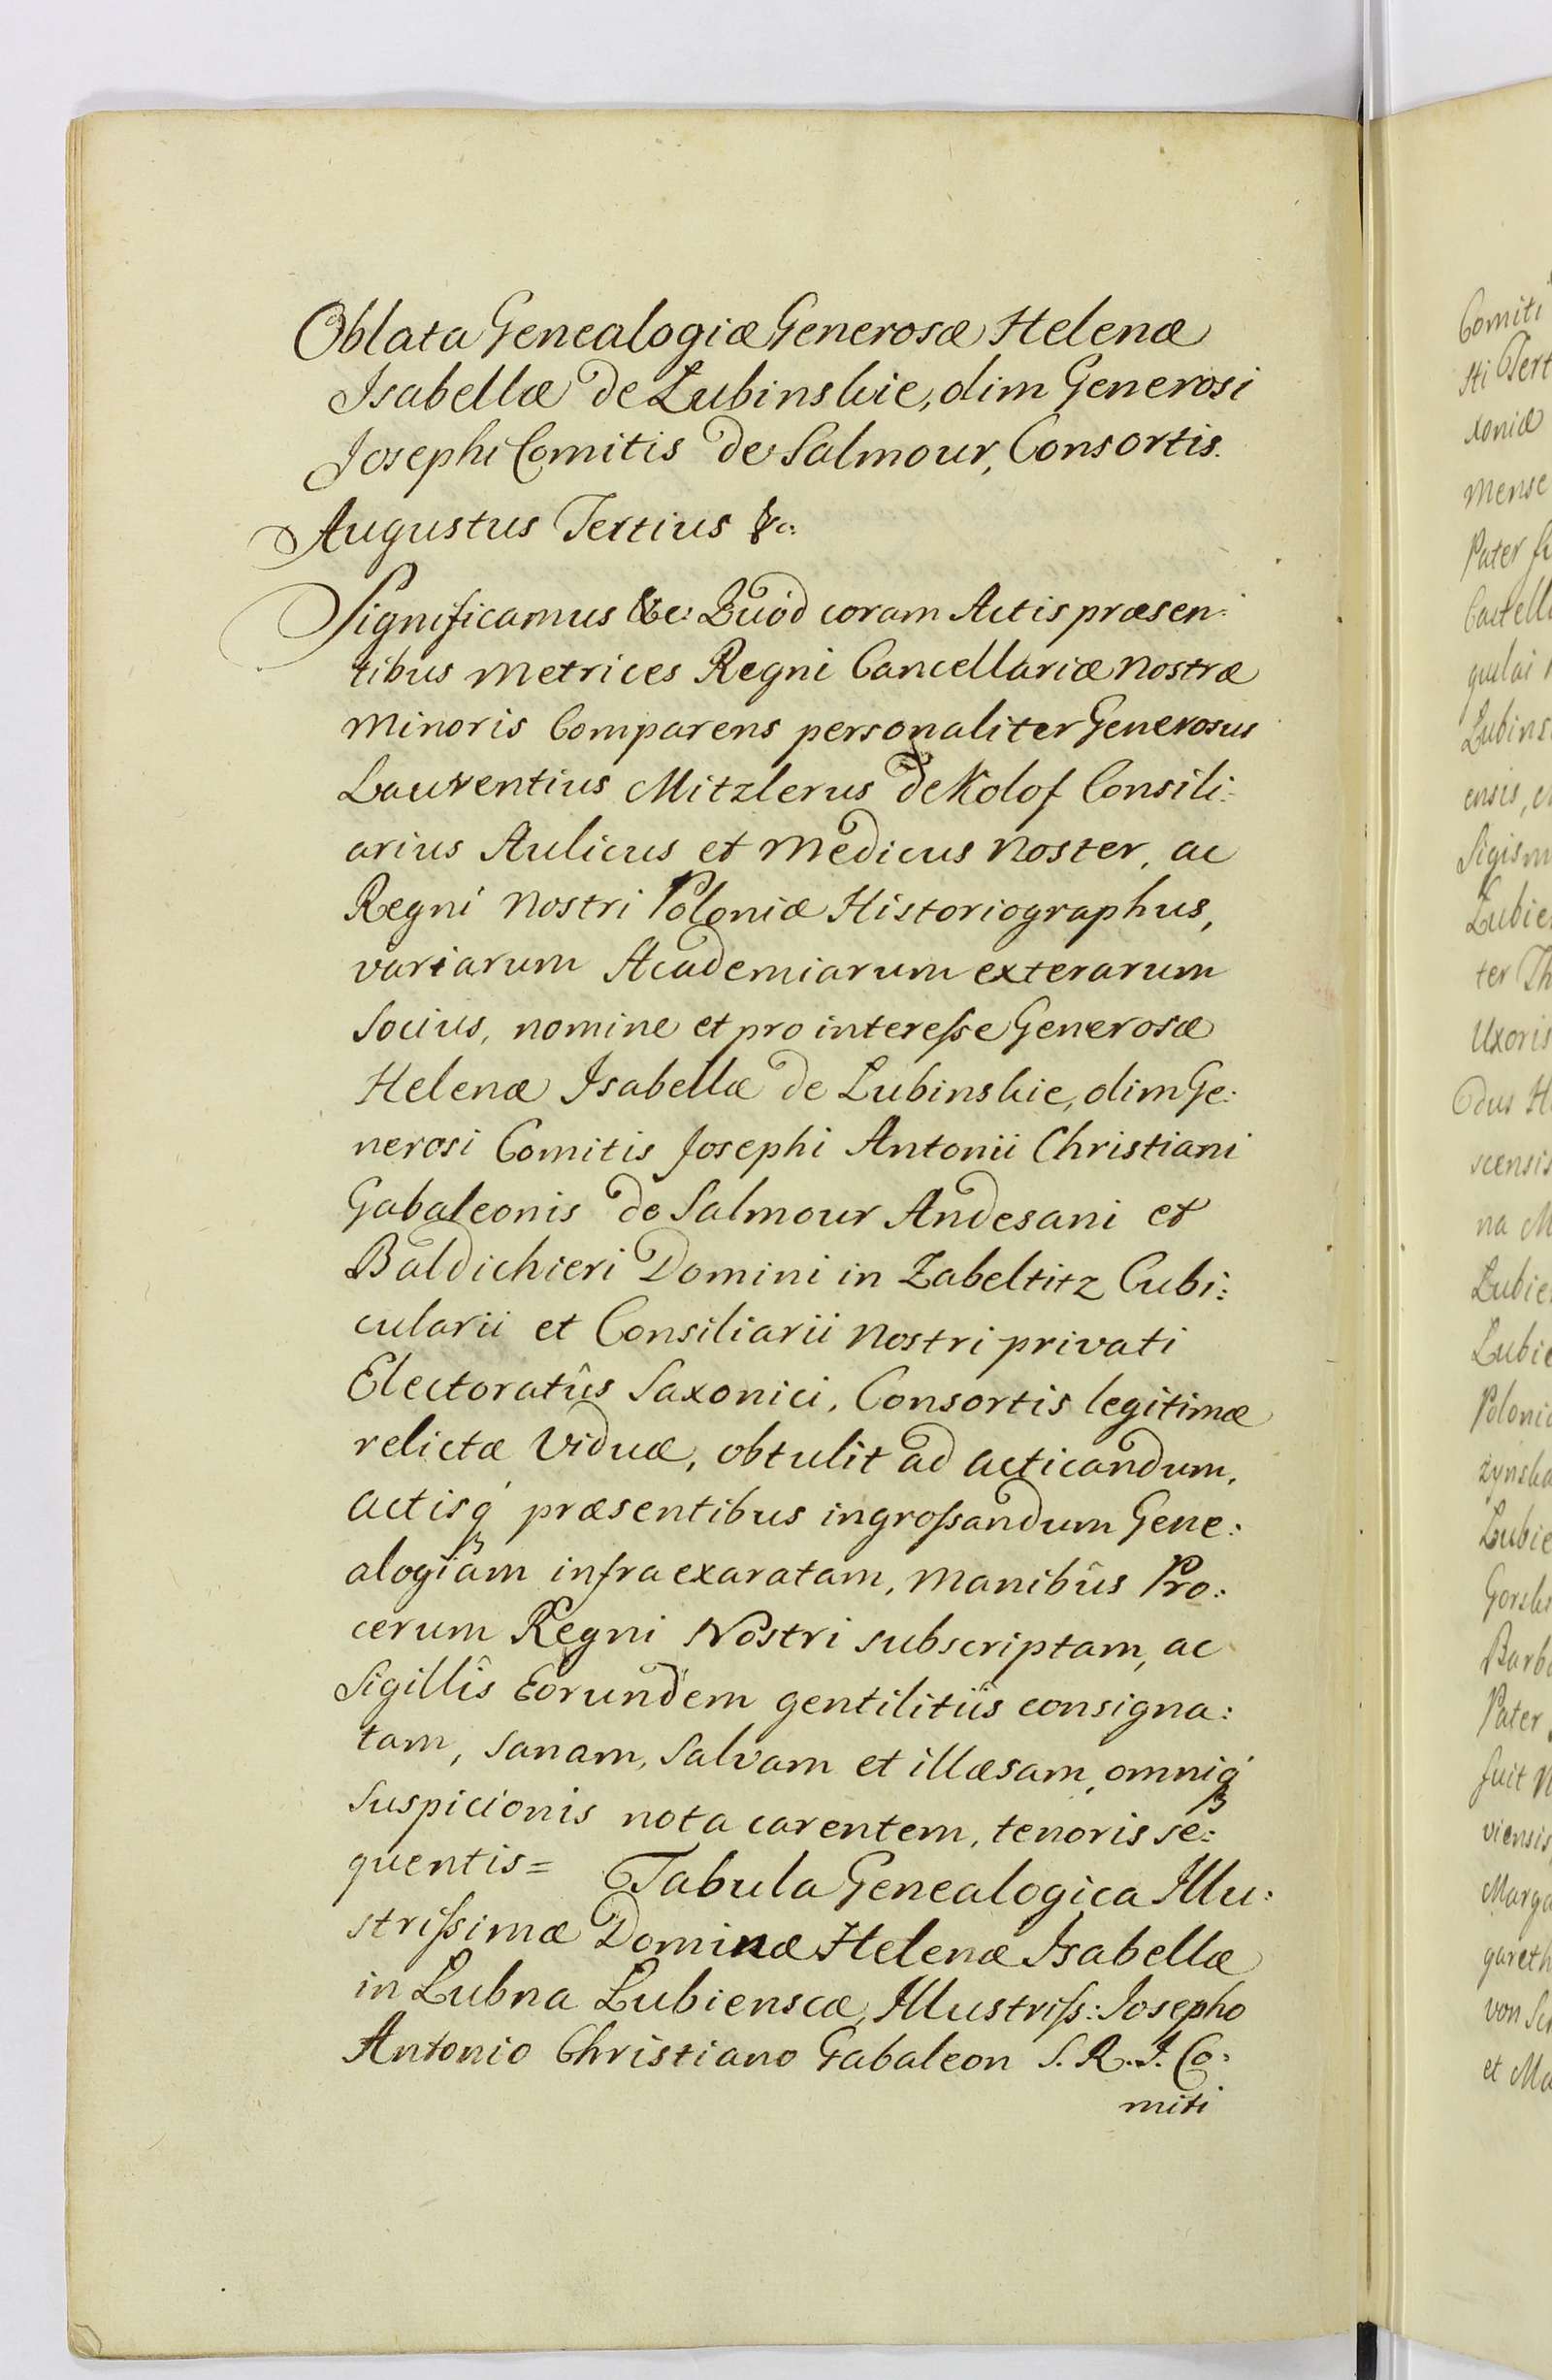 Oblata Genealogiæ Generosæ Helenæ
Isabellæ de Lubinskie, olim Generosi
Josephi Comitis de Salmour, Consortis.
Augustus Tertius &c:
Significamus &c: Quòd coram Actis præsen:
tibus Metrices Regni Cancellariæ Nostræ
Minoris Comparens personaliter Generosus
Laurentius Mitzlerus de Kolof Consili:
arius Aulicus et Medicus Noster, ac
Regni Nostri Poloniæ Historiographus,
variarum Academiarum exterarum
Socius, nomine et pro interesse Generosæ
Helenæ Isabellæ de Lubinskie, olim Ge:
nerosi Comitis Josephi Antonii Christiani
Gabaleonis de Salmour Andesani et
Baldichieri Domini in Zabeltitz Cubi:
cularii et Consiliarii Nostri privati
Electoratûs Saxonici, Consortis legitimæ
relictæ Viduæ, obtulit ad acticandum,
actisq́ præsentibus ingrossandum Gene:
alogiam infra exaratam, Manibûs Pro:
cerum Regni Nostri subscriptam, ac
Sigillîs Eorundem gentilitiis consigna:
tam, sanam, salvam et illæsam, omniq́
suspicionis nota carentem, tenoris se:
quentis = Tabula Genealogica Illu:
strissimæ Dominæ Helenæ Isabellæ
in Lubna Lubienscæ, Illustriss: Josepho
Antonio Christiano Gabaleon S. R. I. Co:
miti
Comiti
xoniæ
Mense
Pater
Lubins
ensis,
Sigism
Lubie
ter Th
Uxoris
scensis
na M
Lubie
Lubie
Poloni
zynska
Lubie
Gorsk
Barb
Pater
fuit
viensis
Marga
gareth
von
et Ma